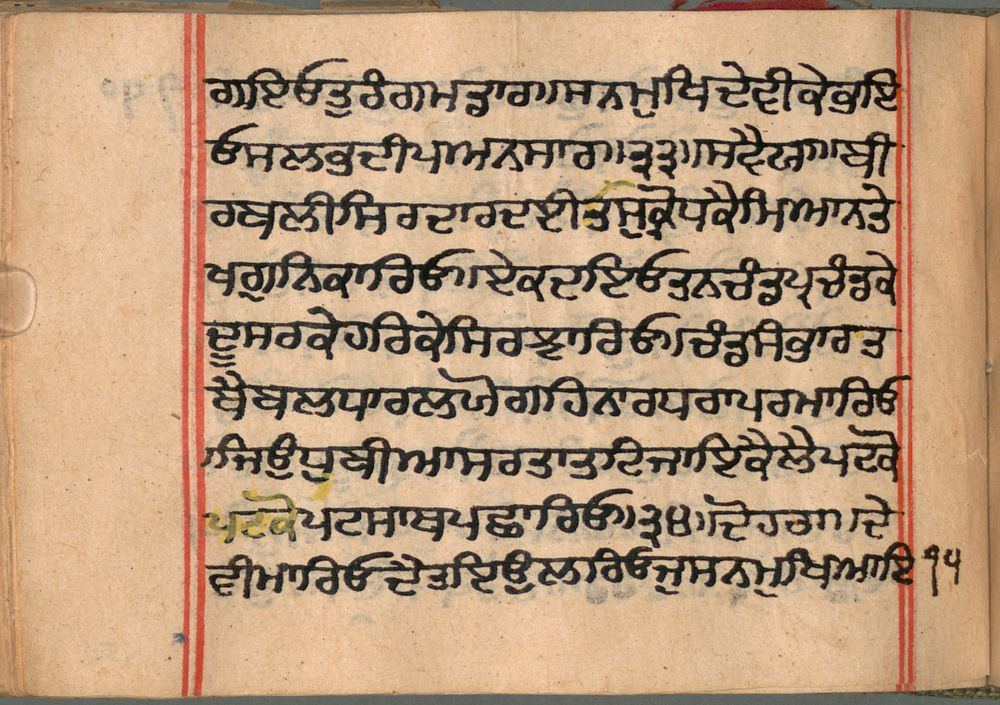 ਗਇਓਤੁਰੰਗਮਤਾਰ।।ਸਨਮੁਖਿਦੇਵੀਕੇਭਇ
ਓਸਲਭਦੀਪਅਨਸਾਰ।।੩੩।।ਸਵੈਯਾ।।ਬੀ
ਰਬਲੀਸਿਰਦਾਰਦਈਤਸੁਕ੍ਰੋਧਕੈਮਿਆਨਤੇ
ਖਗੁਨਿਕਾਰਿਓ।।ਏਕਦਇਓਤਨਚੰਡਪ੍ਰਚੰਡਕੇ
ਦੂਸਰਕੇਹਰਿਕੇਸਿਰਝਾਰਿਓ।।ਚੰਡਸੰਭਾਰਤ
ਬੈਬਲੁਧਾਰਲਯੋਗਹਿਨਾਰਧਰਾਪਰਮਾਰਿਓ
।ਜਿਉਧੁਬੀਆਸਰਤਾਤਟਿਜਾਇਕੈਲੈਪਟਕੋ
ਪਟਕੋਪਟਸਾਥਪਛਾਰਿਓ।।੩੪।।ਦੋਹਰਾ।।ਦੇ
ਵੀਮਾਰਿਓਦੈਤਇਉਲਰਿਓਜੁਸਨਮੁਖਿਆਇ ੧੫